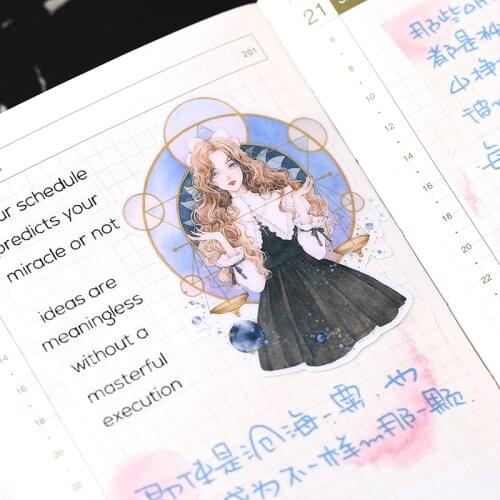 201
ur schedule
predicts your
miracle or not
ideas are
meaningless
without a
masterful
execution
14
16
18
20
22
即使是沧海一粟,也
成为不一样的那一颗
21
6
8
10
12
14
16
18
20
22
那些
都是